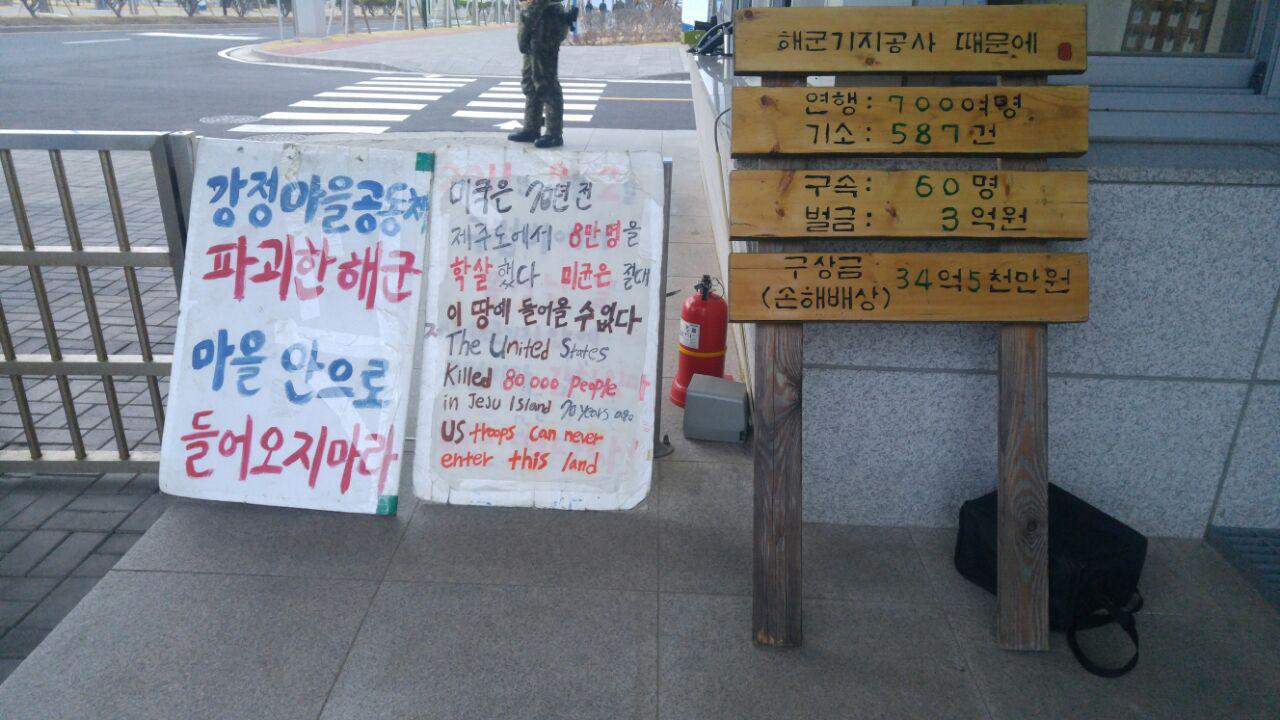 강정마을공동체
파괴한해군
마을 안으로
들어오지마라
미국은 70년전
제주도에서 8만명을
학살했다 미군은 절대
이 땅에 들어올 수 없다
The United States
Killed 80000 people
in JeJu Island 70 years ago
US troops can never
enter this land
해군기지공사 때문에
연행: 700여명
기소: 587건
구속: 60명
벌금: 3억원
구상금
(손해배상) 34억5천만원